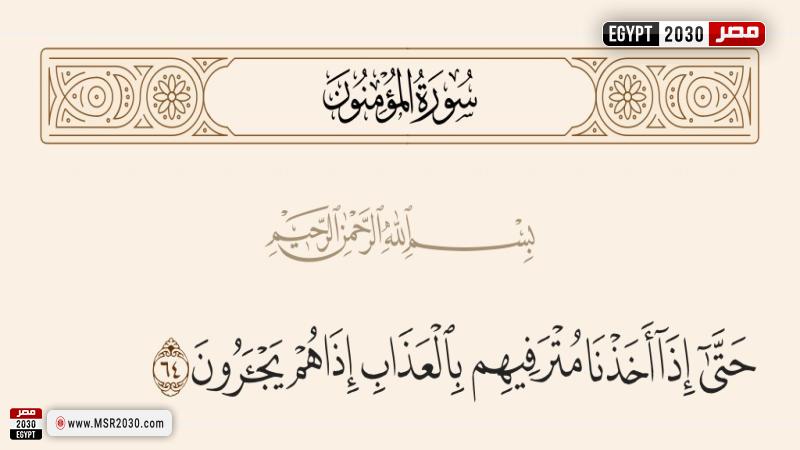 EGYPT 2030 مصر
سُورَةُ الْمُؤْمِنُونَ
بِسْمِ اللَّهِ الرَّحْمَٰنِ الرَّحِيمِ
حَتَّىٰٓ إِذَآ أَخَذْنَا مُتْرَفِيهِم بِٱلْعَذَابِ إِذَا هُمْ يَجْـَٔرُونَ ٦٤
مصر
2030
EGYPT
www.MSR2030.com